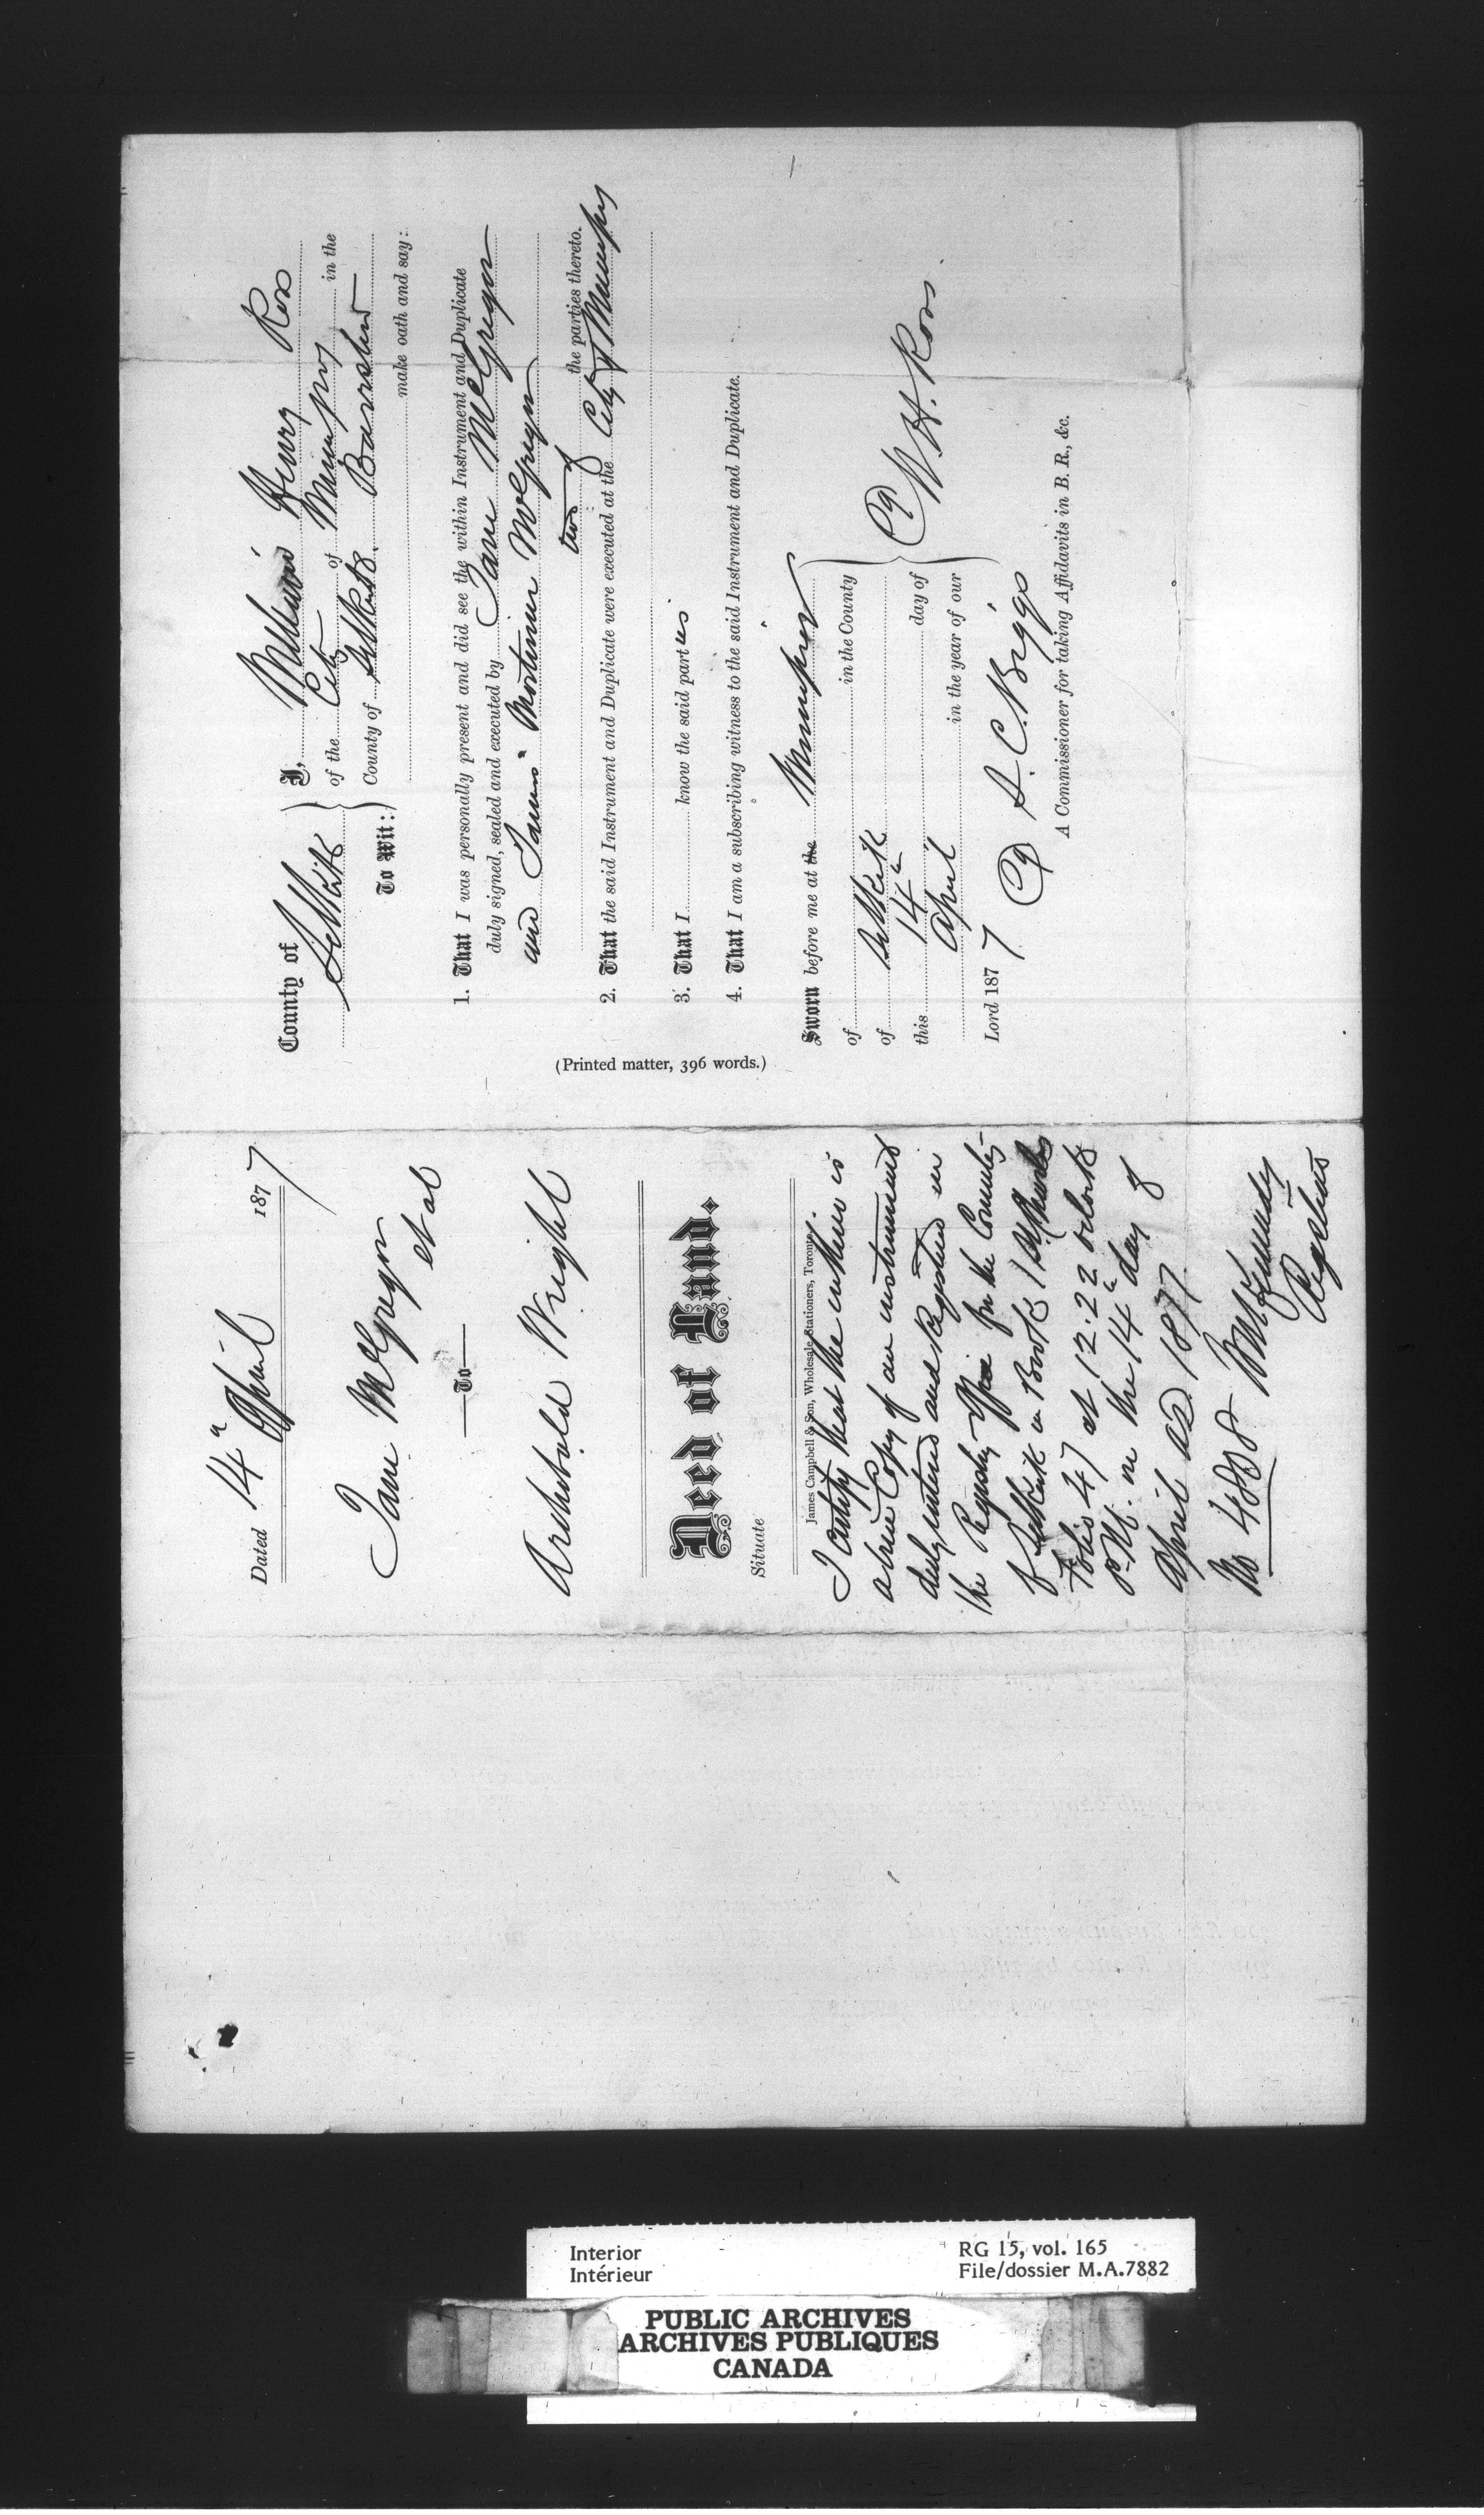 County of
Selkirk
To Wit:
I, William Henry Ross
of the City of Winnipeg in the
County of Selkirk Barrister
make oath and say:
1. That I was personally present and did see the within Instrument and Duplicate
duly signed, sealed and executed by Jane McGregor
and James Mortimer McGregor
two of the parties thereto.
2. That the said Instrument and Duplicate were executed at the City of Winnipeg
3. That I know the said parties
4. That I am a subscribing witness to the said Instrument and Duplicate.
Sworn before me at the Winnipeg
of in the County
of Selkirk
this 14th day of
April in the year of our
Lord 1877
W. H. Ross
A. C. Biggs
A Commissioner for taking Affidavits in B. R., &c.
(Printed matter, 396 words.)
Dated 14th April 1877
Jane McGregor
et al
To
Archibald Wright
Deed of Land.
Situate
James Campbell & Son, Wholesale Stationers, Toronto.
I certify that the within is
a true Copy of an instrument
duly entered and Registered in
the Registry Office for the County
of Selkirk in Book 1
Folio 47 at 12.22 o'clock
P.M. on the 14th day of
April AD. 1877.
No 4888
Registrar
Interior
Intérieur
RG 15, vol. 165
File/dossier M.A.7882
PUBLIC ARCHIVES
ARCHIVES PUBLIQUES
CANADA